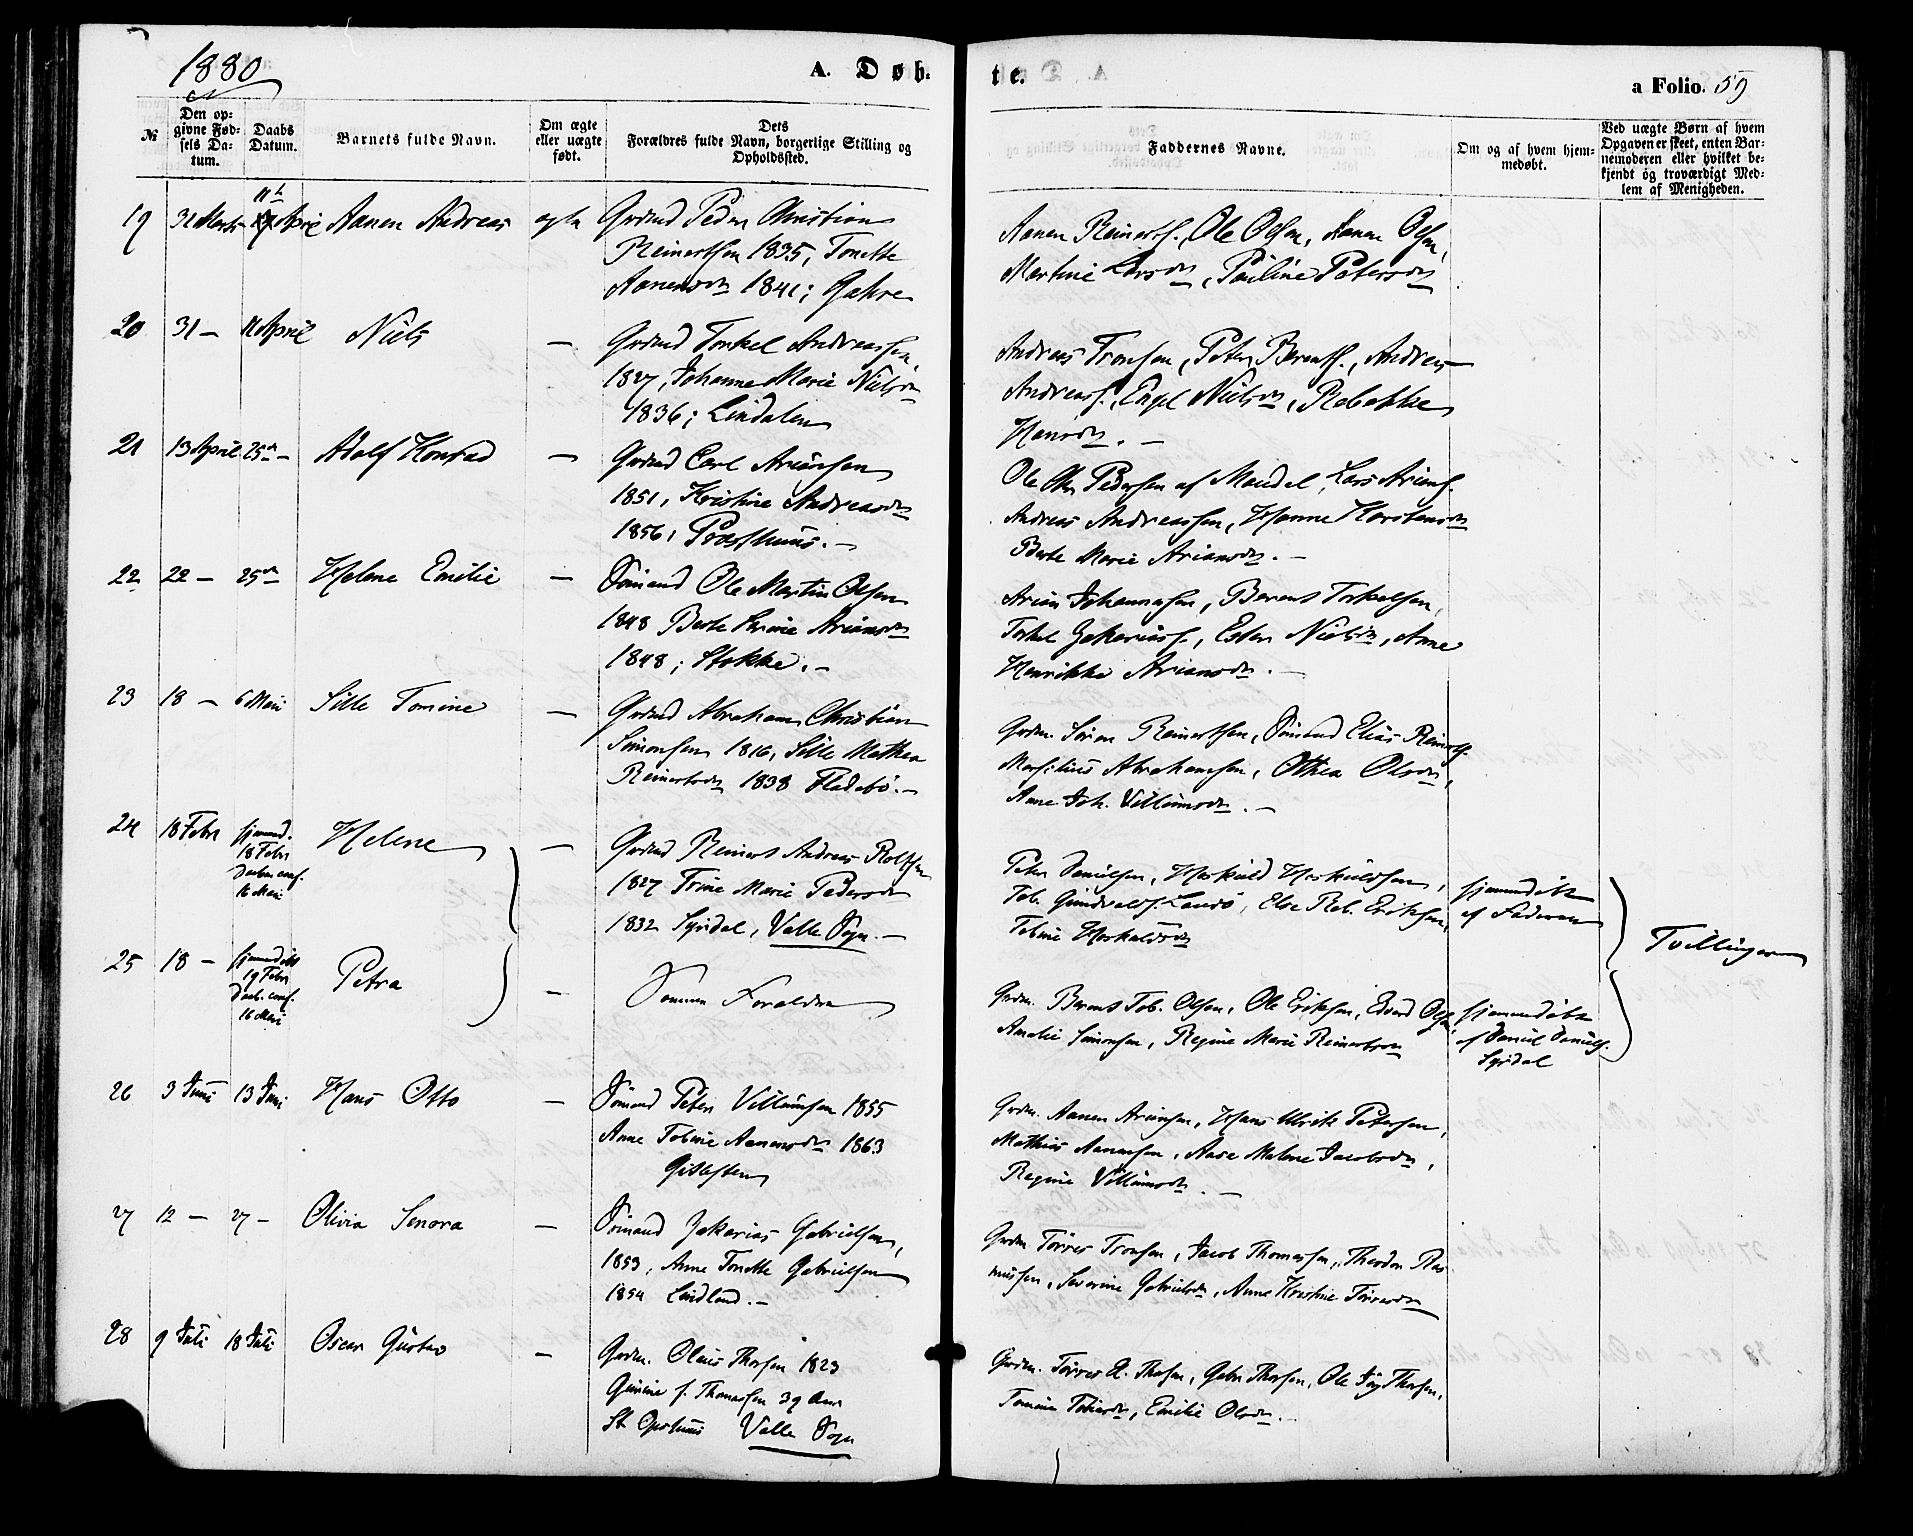 1880
A. Døb-
te.
a Folio. 59
№
Den op-
givne Fød-
sels Da-
tum.
Daabs
Datum.
Barnets fulde Navn.
Om ægte
eller uægte
født.
Dets
Forældres fulde Navn, borgerlige Stilling og
Opholdssted.
Faddernes Navne.
Om og af hvem hjem-
medøbt.
Ved uægte Børn af hvem
Opgaven er skeet, enten Bar-
nemoderen eller hvilket be-
kjendt og troværdigt Med-
lem af Menigheden.
19 31 Marts April Aanen Andreas ægte Grdmd Peder Christian
Reinertsen 1835, Tonette
Aanensdtr 1841;
Aanen Reinerts., Ole Olsen, Aanen Olsen,
Martine Larsdtr, Pauline Petersdtr
20 31 – 11 April Niels — Grdmd Torkel Andreassen
1827, Johanne Marie Nielsdtr
1836; Lindalen
Andreas Tronsen, Peter Berents., Andreas
Andreas., Engel Nielsdtr, Rebekke
Hansdtr. –
21 13 April 25de – Adolf Konrad — Grdmd Carl Ariansen
1851, Kristine Andreasdtr
1856,
Ole Chr. Pedersen af Mandal, Lars Arians.
Andreas Andreassen, Hanne Karstensdtr
Berte Marie Ariansdtr. –
22 22 – 25de Helene Emilie — Sømand Ole Martin Olsen
1848 Berte Trine Ariansdtr
1848; Stokke. –
Arian Johannesen, Berent Torkelsen,
Torkel Zakarias., Ester Nielsdtr, Anne
Henrikke Ariansdtr. –
23 18 – 6 Mai Sille Tomine — Grdmd Abraham Christian
Simonsen 1816, Sille Mathea
Reinertsdtr 1838 Fladebø. –
Grdm. Søren Reinertsen, Sømand Elias Reinerts.
Marselius Abrahamsen, Othea Olsdtr,
Anne Joh. Villumsdtr. –
24 18 Febr hjemmd.
18 Febr
Daaben conf.
16 Mai
Helene — Grdmd Reinert Andreas Rolfsen
1827 Trine Marie Pedersdtr
1832 Syrdal, Valle Sogn. –
Peter Danielsen, Herkuld Herkuldsen,
Tob. Gundvalds. Landø, Else Reb. Eriksen,
Tobine Herkuldsdtr
hjemmedøbt
af Faderen
Tvillinger
25 18 – hjemmedøbt
19 Febr
Daab. conf.
16 Mai
Petra — Samme Forældre
Grdm. Berent Tob. Olsen, Ole Eriksen, Edvard Olsen,
Amalie Simonsen, Regine Marie Reinertsen
hjemmedøbt
af Daniel Daniels.
Syrdal
26 3 Juni 13 Juni Hans Otto — Sømand Peter Villumsen 1855
Anne Tobine Aanensdtr 1863
Gislefjen
Grdm. Aanen Ariansen, Hans Ulrik Petersen,
Mathias Aanensen, Aase Malene Jacobsdtr,
Regine Villumsdtr. –
27 12 – 27 – Olivia Senora — Sømand Zakarias Gabrielsen,
1853, Anne Tonette Gabrielsen
1854 Lindland. –
Grdm Tørres Tronsen, Jacob Thomassen, Theodor Ras-
mussen, Severine Gabrielsdtr, Anne Kristine Tørresdtr
28 9 Juli 18 Juli Oscar Gustav — Grdm. Olaus Thorsen 1823
Gunine f. Thomassen 39 Aar
Valle Sogn
Grdm. Tørres A. Thorsen, Gabr Thorsen, Ole Jørg Thorsen,
Tomine Tobiasdtr, Emilie Olsdtr. –